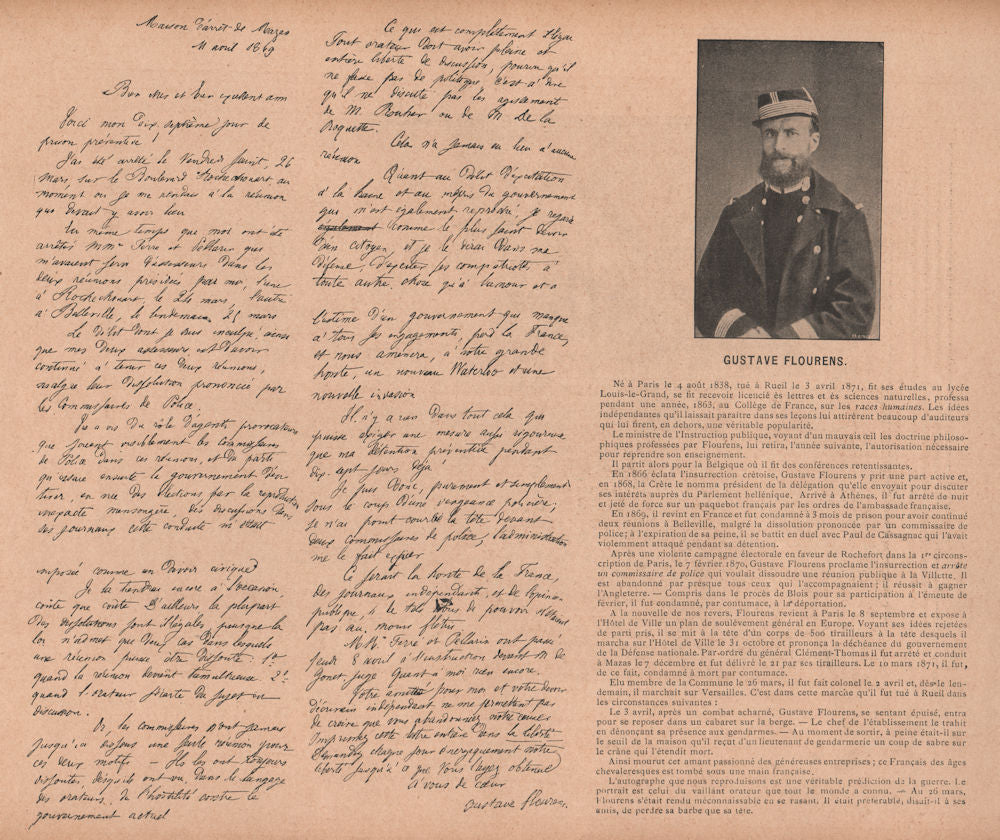 Maison d'arrêt de Mazas
11 avril 1869
Bon, mes et bien excellent ami
Voici mon dix septième jour de
prison préventive!
J'ai été arrêté le Vendredi Saint, 26
Mars sur le Boulevard Rochechouart au
moment où je me rendais à la réunion
qui devait y avoir lieu
En même temps que moi ont été
arrêtés MMrs Ferré et
m'avaient servi d'assesseurs dans les
deux réunions présidées par moi, l'une
à Rochechouart, le 24 mars, l'autre
à Belleville, le lendemain 25 mars
Le Délit dont je suis inculpé ainsi
que mes deux assesseurs est d'avoir
continué à tenir ces deux réunions,
malgré leur dissolution prononcée par
les Commissaires de Police.
Vis à vis du rôle d'agents provocateurs
que jouent visiblement les Commissaires
de Police dans ces réunions, et du parti
qu'essaie ensuite le gouvernement d'en
tirer, en vue des élections par la reproduction
inexacte mensongère, des discussions dans
ses journaux cette conduite m'était
imposée comme un Devoir civique
Je la tiendrai encore à l'occasion
coûte que coûte D'ailleurs, la plupart
Des dissolutions sont illégales puisque la
loi n'admet que Deux cas dans lesquels
une réunion puisse être dissoute: 1°
quand la réunion devient tumultueuse. 2°
quand l'orateur s'écarte du sujet en
discussion.
Or, les commissaires n'ont jamais
jusqu'ici dissous une seule réunion pour
ces deux motifs — Ils les ont toujours
dissoutes lorsqu'ils ont vu dans le langage
des orateurs, de l'hostilité contre le
gouvernement actuel
Ce qui est complètement illégal
Tout orateur doit avoir pleine et
entière liberté de discussion, pourvu qu'il
ne fasse pas de politique c'est à dire
qu'il ne discute pas les agissements
de M. Rouher ou de M De la
Roquette.
Cela n'a jamais eu lieu à aucune
réunion
Quant au Délit D'excitation
à la haine et au mépris du gouvernement
qui m'est également reproché, je regarde
également comme le plus saint devoir
d'un citoyen, et je le dirai dans ma
Défense, d'exciter ses compatriotes à
toute autre chose qu'à l'amour et à
l'estime D'un gouvernement qui manque
à tous ses engagements, perd la France,
et nous amènera, à notre grande
honte, un nouveau Waterloo et une
nouvelle invasion
Il n'y a rien Dans tout cela qui
puisse exiger une mesure aussi rigoureuse
que ma Détention préventive pendant
dix-sept jours déjà!
Je suis Donc, purement et simplement
sous le coup D'une vengeance policière;
je n'ai point courbé la tête devant
deux commissaires de police, l'administration
me le fait expier
Ce serait la honte de la France,
des journaux indépendants, et de l'opinion
publique, si de tels de pouvoir n'étaient
pas au moins flétris
MM. Ferré et ont passé
Jeudi 8 avril à l'instruction devant M. de
Gonet, juge Quant à moi rien encore.
Votre amitié pour moi et votre devoir
d'écrivain indépendant ne me permettent pas
de croire que vous abandonniez notre cause
Imprimez cette lettre entière Dans la Liberté
Demandez chaque jour énergiquement notre
liberté jusqu'à ce que vous l'ayez obtenue
à vous de cœur
Gustave Flourens
GUSTAVE FLOURENS.
Né à Paris le 4 août 1838, tué à Rueil le 3 avril 1871, fit ses études au lycée
Louis-le-Grand, se fit recevoir licencié ès lettres et ès sciences naturelles, professa
pendant une année, 1863, au Collège de France, sur les races humaines. Les idées
indépendantes qu'il laissait paraître dans ses leçons lui attirèrent beaucoup d'auditeurs
qui lui firent, en dehors, une véritable popularité.
Le ministre de l'Instruction publique, voyant d'un mauvais œil les doctrine philoso-
phiques professées par Flourens, lui retira, l'année suivante, l'autorisation nécessaire
pour reprendre son enseignement.
Il partit alors pour la Belgique où il fit des conférences retentissantes.
En 1866 éclata l'insurrection crétoise, Gustave Flourens y prit une part active et,
en 1868, la Crète le nomma président de la délégation qu'elle envoyait pour discuter
ses intérêts auprès du Parlement hellénique. Arrivé à Athènes, il fut arrêté de nuit
et jeté de force sur un paquebot français par les ordres de l'ambassade française.
En 1869, il revint en France et fut condamné à 3 mois de prison pour avoir continué
deux réunions à Belleville, malgré la dissolution prononcée par un commissaire de
police; à l'expiration de sa peine, il se battit en duel avec Paul de Cassagnac qui l'avait
violemment attaqué pendant sa détention.
Après une violente campagne électorale en faveur de Rochefort dans la 1re circons-
cription de Paris, le 7 février 1870, Gustave Flourens proclame l'insurrection et arrête
un commissaire de police qui voulait dissoudre une réunion publique à la Villette. Il
est abandonné par presque tous ceux qui l'accompagnaient; il réussit à gagner
l'Angleterre. — Compris dans le procès de Blois pour sa participation à l'émeute de
février, il fut condamné, par contumace, à la déportation.
A la nouvelle de nos revers, Flourens revient à Paris le 8 septembre et expose à
l'Hôtel de Ville un plan de soulèvement général en Europe. Voyant ses idées rejetées
de parti pris, il se mit à la tête d'un corps de 500 tirailleurs à la tête desquels il
marcha sur l'Hôtel de Ville le 31 octobre et prononça la déchéance du gouvernement
de la Défense nationale. Par ordre du général Clément-Thomas il fut arrêté et conduit
à Mazas le 7 décembre et fut délivré le 21 par ses tirailleurs. Le 10 mars 1871, il fut,
de ce fait, condamné à mort par contumace.
Elu membre de la Commune le 26 mars, il fut fait colonel le 2 avril et, dès le len-
demain, il marchait sur Versailles. C'est dans cette marche qu'il fut tué à Rueil dans
les circonstances suivantes :
Le 3 avril, après un combat acharné, Gustave Flourens, se sentant épuisé, entra
pour se reposer dans un cabaret sur la berge. — Le chef de l'établissement le trahit
en dénonçant sa présence aux gendarmes. — Au moment de sortir, à peine était-il sur
le seuil de la maison qu'il reçut d'un lieutenant de gendarmerie un coup de sabre sur
le crâne qui l'étendit mort.
Ainsi mourut cet amant passionné des généreuses entreprises; ce Français des âges
chevaleresques est tombé sous une main française.
L'autographe que nous reproduisons est une véritable prédiction de la guerre. Le
portrait est celui du vaillant orateur que tout le monde a connu. — Au 26 mars,
Flourens s'était rendu méconnaissable en se rasant. Il était préférable, disait-il à ses
amis, de perdre sa barbe que sa tête.